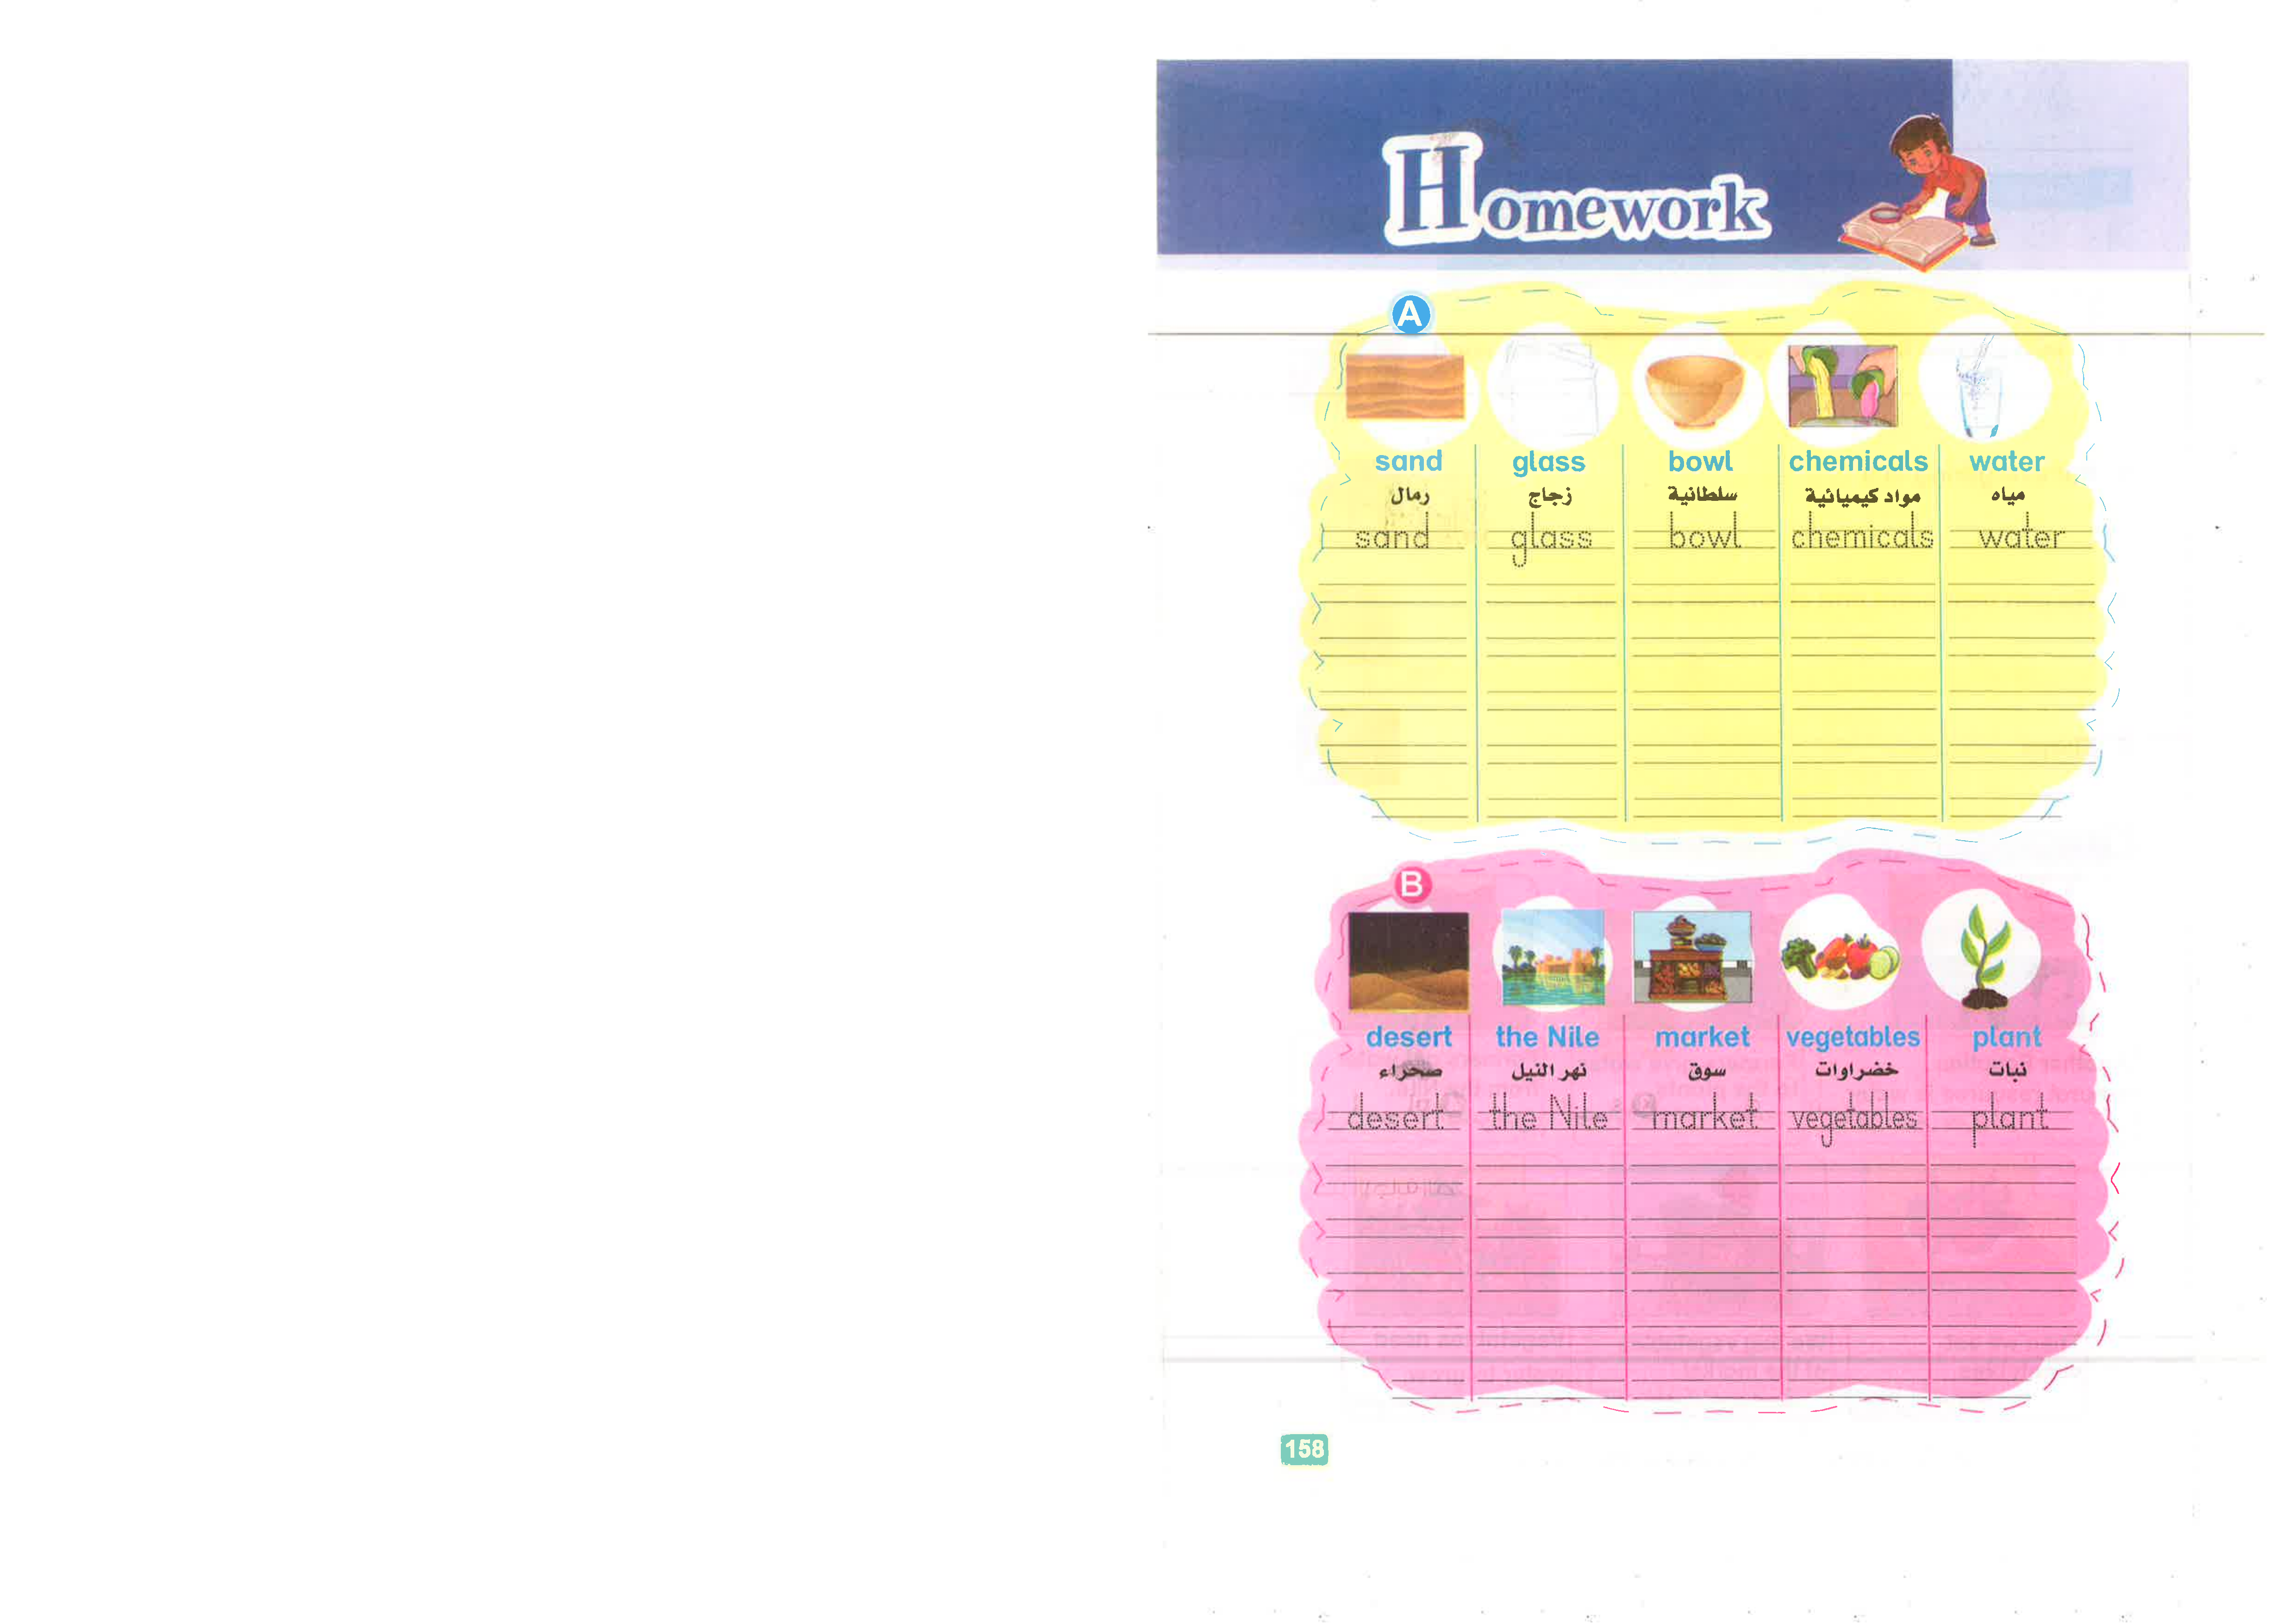 Homework
A
sand glass bowl chemicals water
رمال زجاج سلطانية مواد كيميائية مياه
sand glass bowl chemicals water
B
desert the Nile market vegetables plant
صحراء نهر النيل سوق خضراوات نبات
desert the Nile market vegetables plant
158